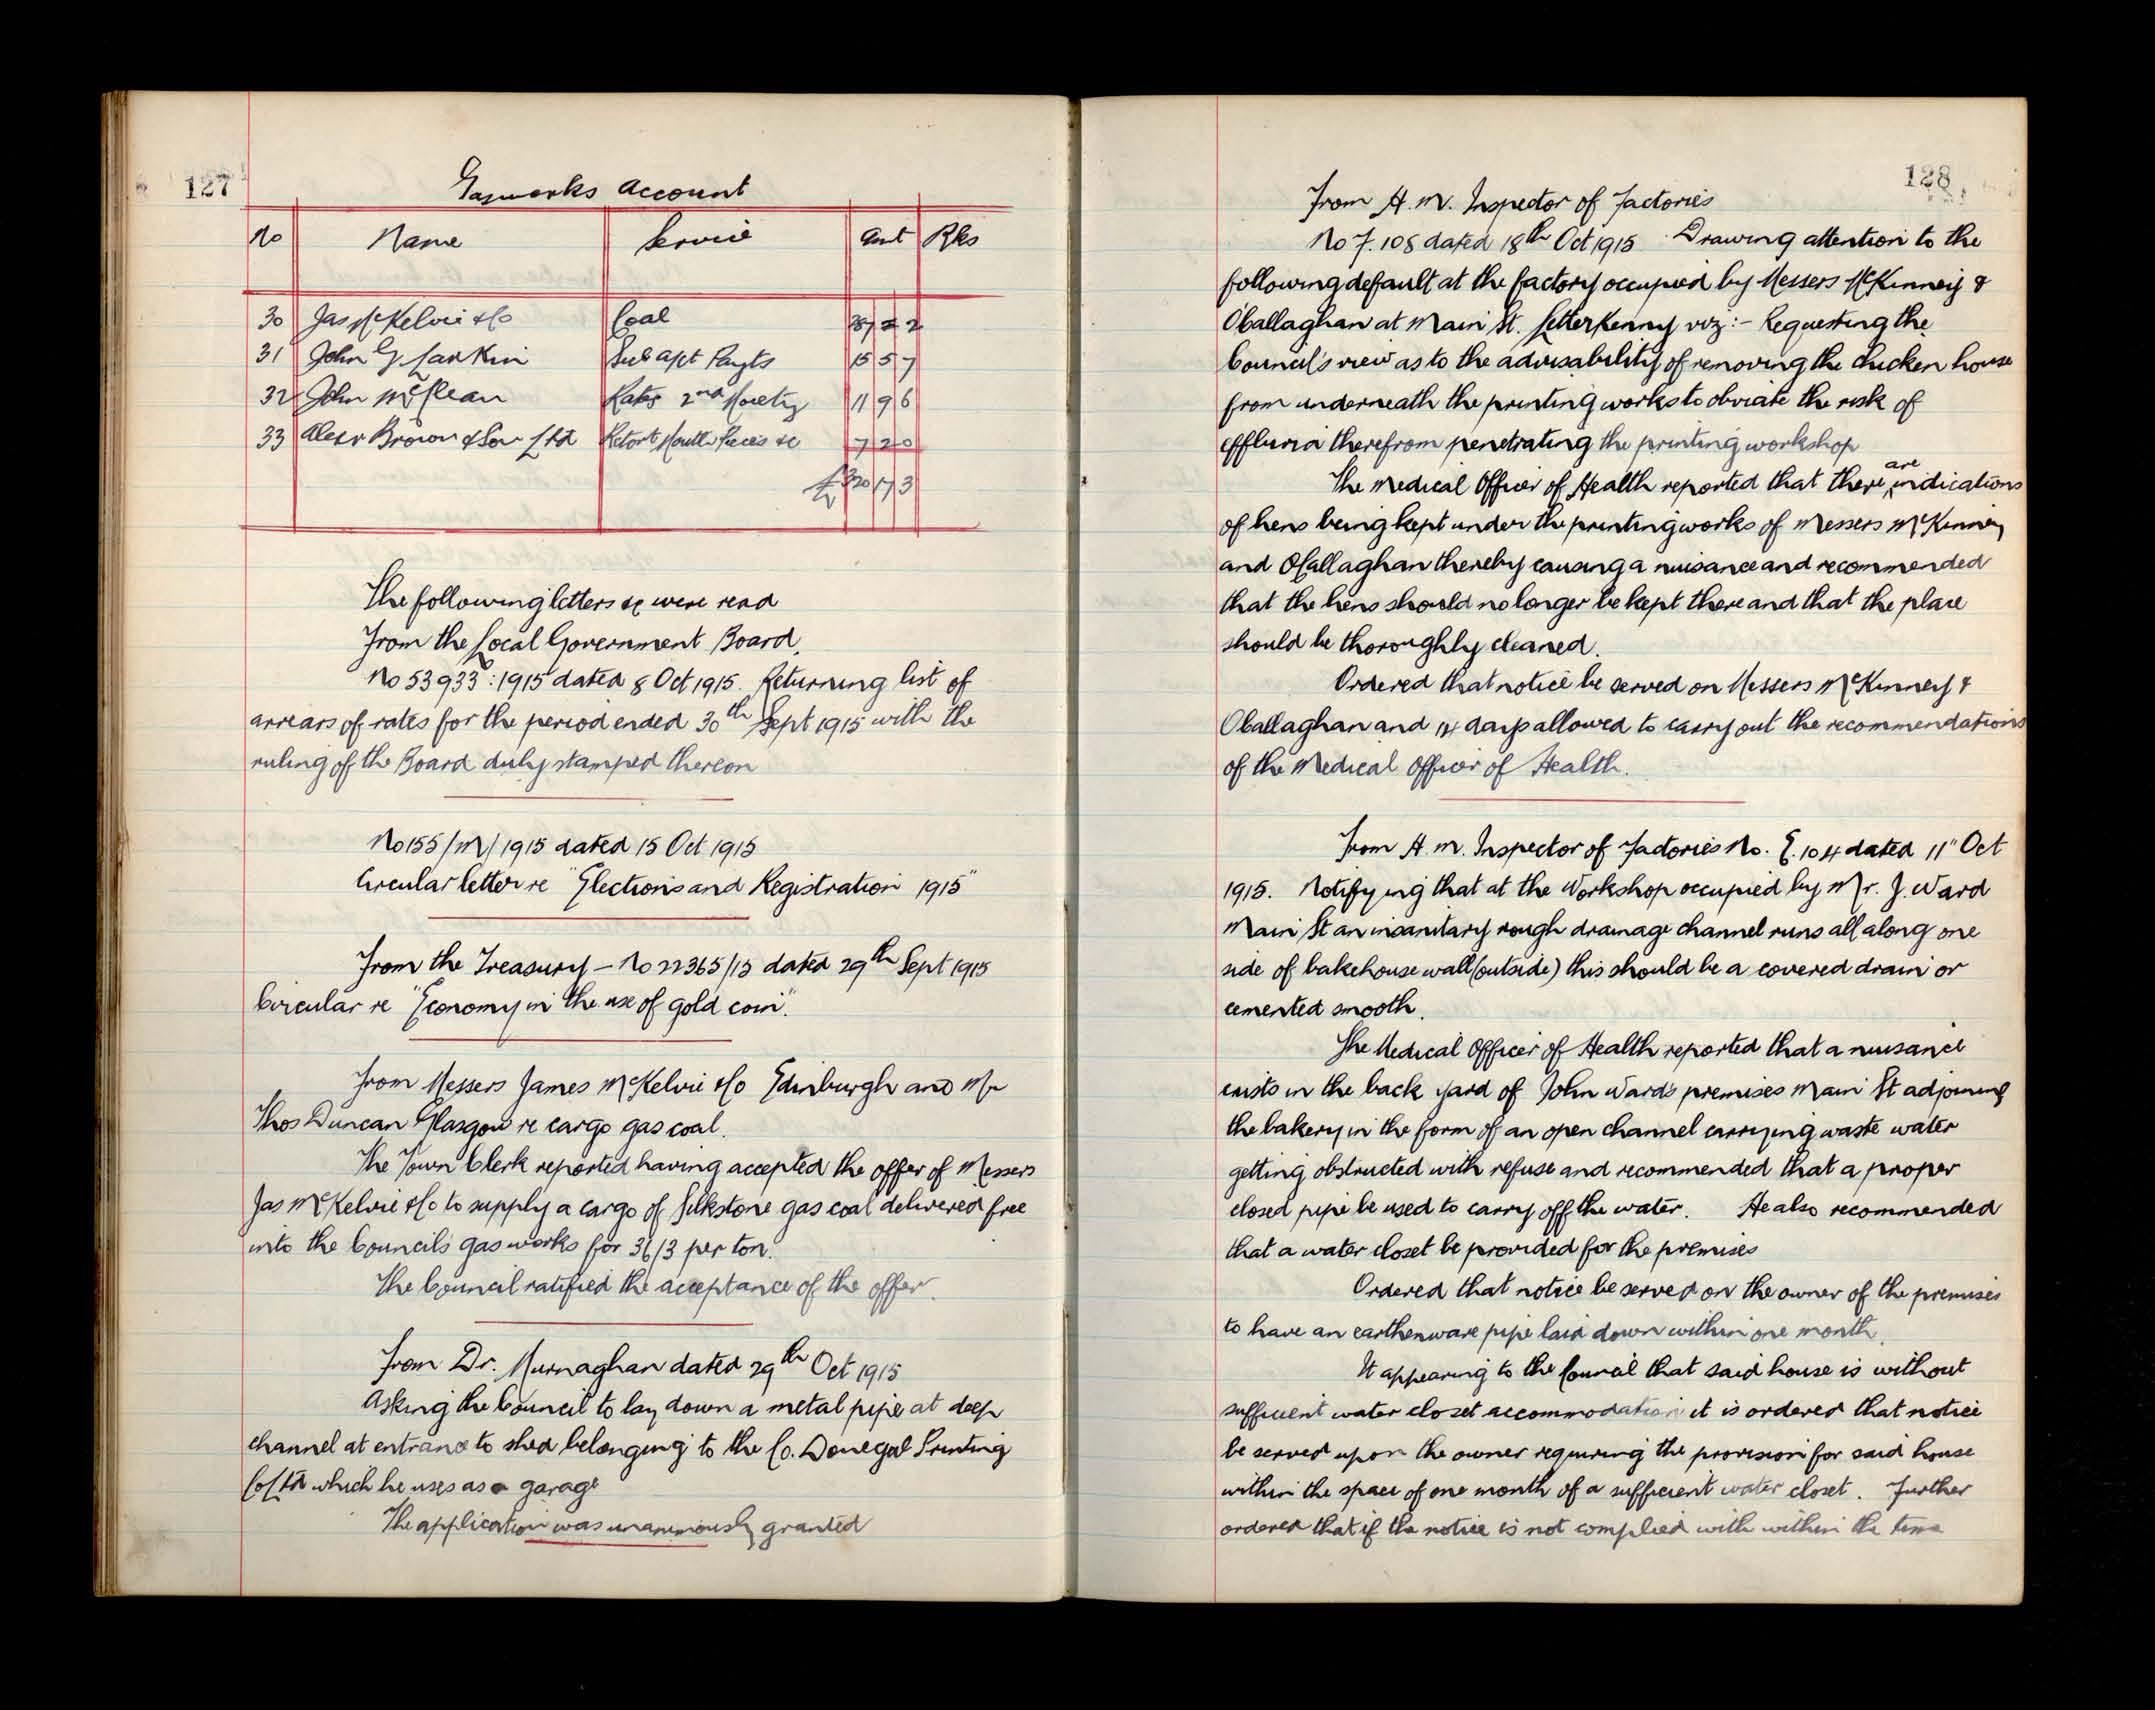 127
Gasworks Account
No Name Service Amt Rks
30 Jas McKelvie & Co Coal 2
31 John G. Larkin Sub a/ct Paymts 15 5 7
32 John McClean Rates 2nd Moiety 11 9 6
33 Alexr Brown & Son Ltd Retort Mouth Pieces &c 7 2 0
£320 17 3
The following letters &c were read
From the Local Government Board.
No 53933 : 1915 dated 8 Oct 1915. Returning list of
arrears of rates for the period ended 30th Sept 1915 with the
ruling of the Board duly stamped thereon
No 155/M/1915 dated 15 Oct 1915
Circular letter re "Elections and Registration 1915"
From the Treasury – No 22365/15 dated 29th Sept 1915
Circular re "Economy in the use of gold coin".
From Messers James McKelvie & Co Edinburgh and Mr
Thos Duncan Glasgow re cargo gas coal.
The Town Clerk reported having accepted the offer of Messers
Jas McKelvie & Co to supply a cargo of Silkstone gas coal delivered free
into the Council's gas works for 36/3 per ton.
The Council ratified the acceptance of the offer.
From Dr. Murnaghan dated 29th Oct 1915
Asking the Council to lay down a metal pipe at deep
channel at entrance to shed belonging to the Co. Donegal Printing
Co Ltd which he uses as a garage
The application was unanimously granted
128
From H.M. Inspector of Factories
No F.108 dated 18th Oct 1915 Drawing attention to the
following default at the factory occupied by Messers McKinney &
O'Callaghan at Main St. Letterkenny viz :- Requesting the
Council's view as to the advisability of removing the chicken house
from underneath the printing works to obviate the risk of
effluvia therefrom penetrating the printing workshop
The Medical Officer of Health reported that there are indications
of hens being kept under the printing works of Messers McKinney
and O'Callaghan thereby causing a nuisance and recommended
that the hens should no longer be kept there and that the place
should be thoroughly cleaned.
Ordered that notice be served on Messers McKinney &
O'Callaghan and 14 days allowed to carry out the recommendations
of the Medical Officer of Health.
From H.M. Inspector of Factories No. E.104 dated 11" Oct
1915. Notifying that at the Workshop occupied by Mr. J. Ward
Main St an insanitary rough drainage channel runs all along one
side of bakehouse wall (outside) this should be a covered drain or
cemented smooth.
The Medical Officer of Health reported that a nuisance
exists in the back yard of John Ward's premises Main St adjoining
the bakery in the form of an open channel carrying waste water
getting obstructed with refuse and recommended that a proper
closed pipe be used to carry off the water. He also recommended
that a water closet be provided for the premises
Ordered that notice be served on the owner of the premises
to have an earthenware pipe laid down within one month.
It appearing to the Council that said house is without
sufficient water closet accommodation it is ordered that notice
be served upon the owner requiring the provision for said house
within the space of one month of a sufficient water closet. Further
ordered that if the notice is not complied with within the time